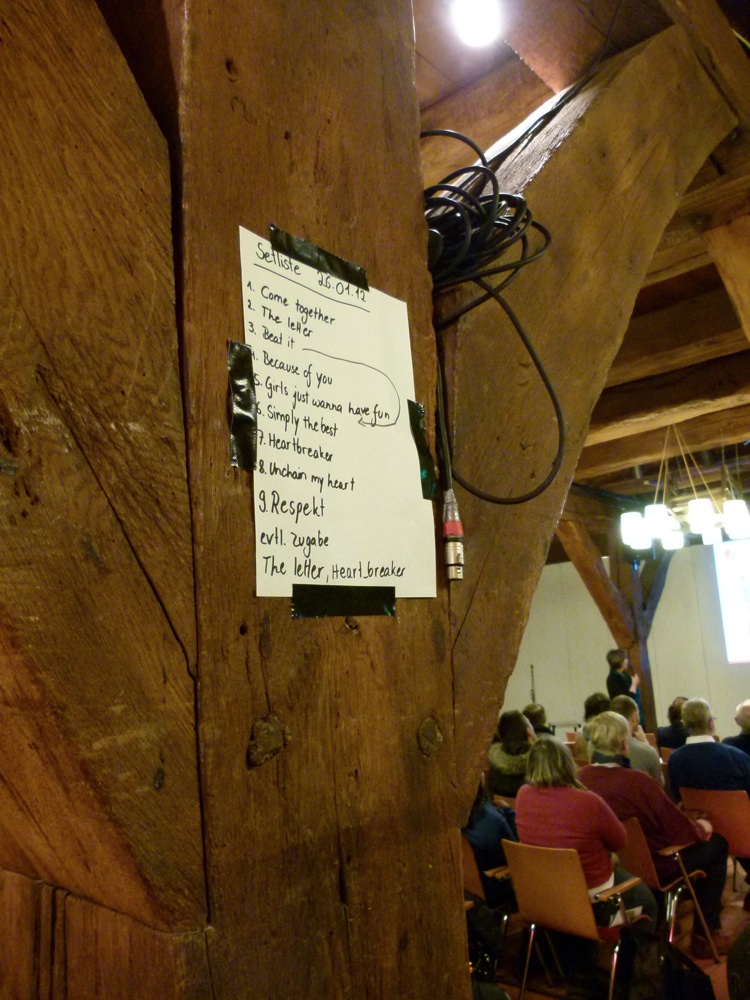 Setliste 26.01.12
1. Come together
2. The letter
3. Beat it
4. Because of you
5. Girls just wanna have fun
6. Simply the best
7. Heartbreaker
8. Unchain my heart
9. Respekt
evtl. Zugabe
The letter, Heart_breaker